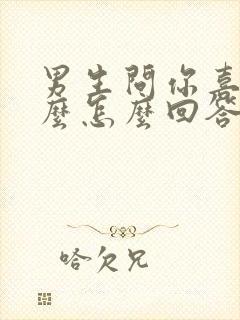 男生問你喜
麼怎麼回答
哈欠兄